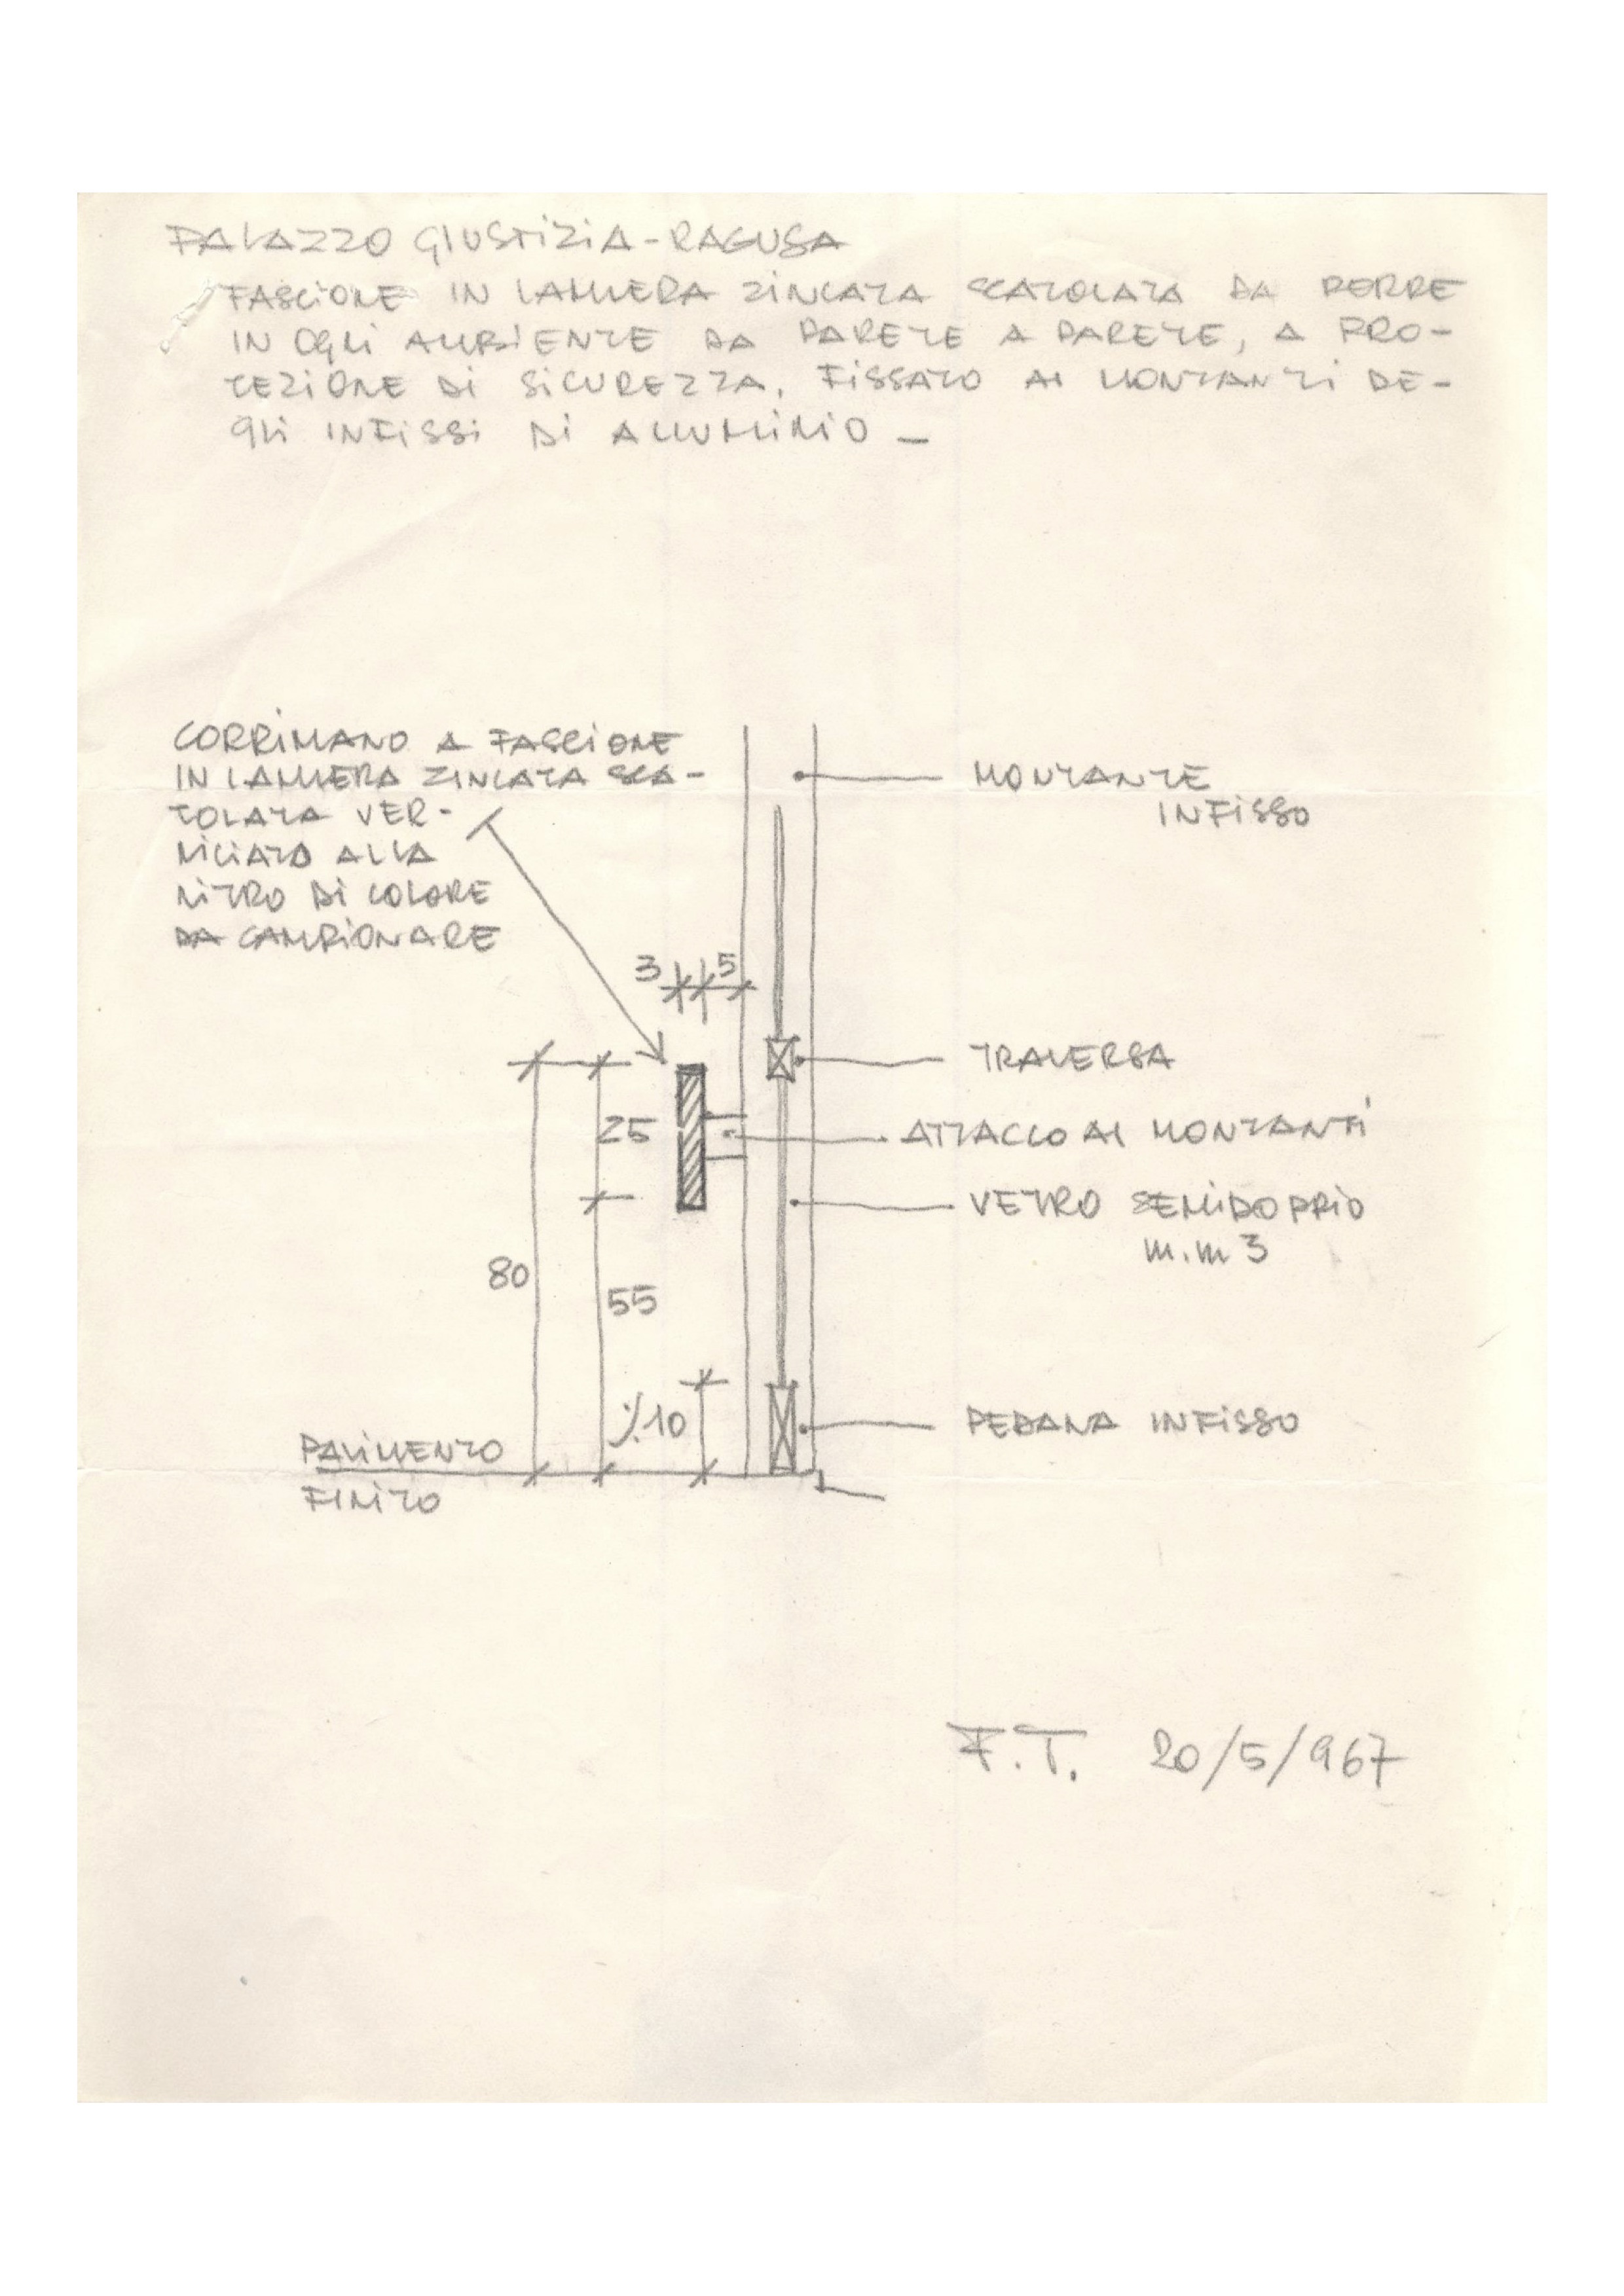 PALAZZO GIUSTIZIA-RAGUSA
FASCIONE IN LAMIERA ZINCATA SCATOLATA DA PORRE
IN OGNI AMBIENTE DA PARETE A PARETE, A PRO-
TEZIONE DI SICUREZZA, FISSATO AI MONTANTI DE-
GLI INFISSI DI ALLUMINIO -
CORRIMANO A FASCIONE
IN LAMIERA ZINCATA SCA-
TOLATA VER-
NICIATO ALLA
NITRO DI COLORE
DA CAMPIONARE
MONTANTE
INFISSO
3 5
TRAVERSA
25
ATTACCO AI MONTANTI
VETRO SEMIDOPPIO
m.m 3
80
55
10
PEDANA INFISSO
PAVIMENTO
FINITO
F.T. 20/5/967